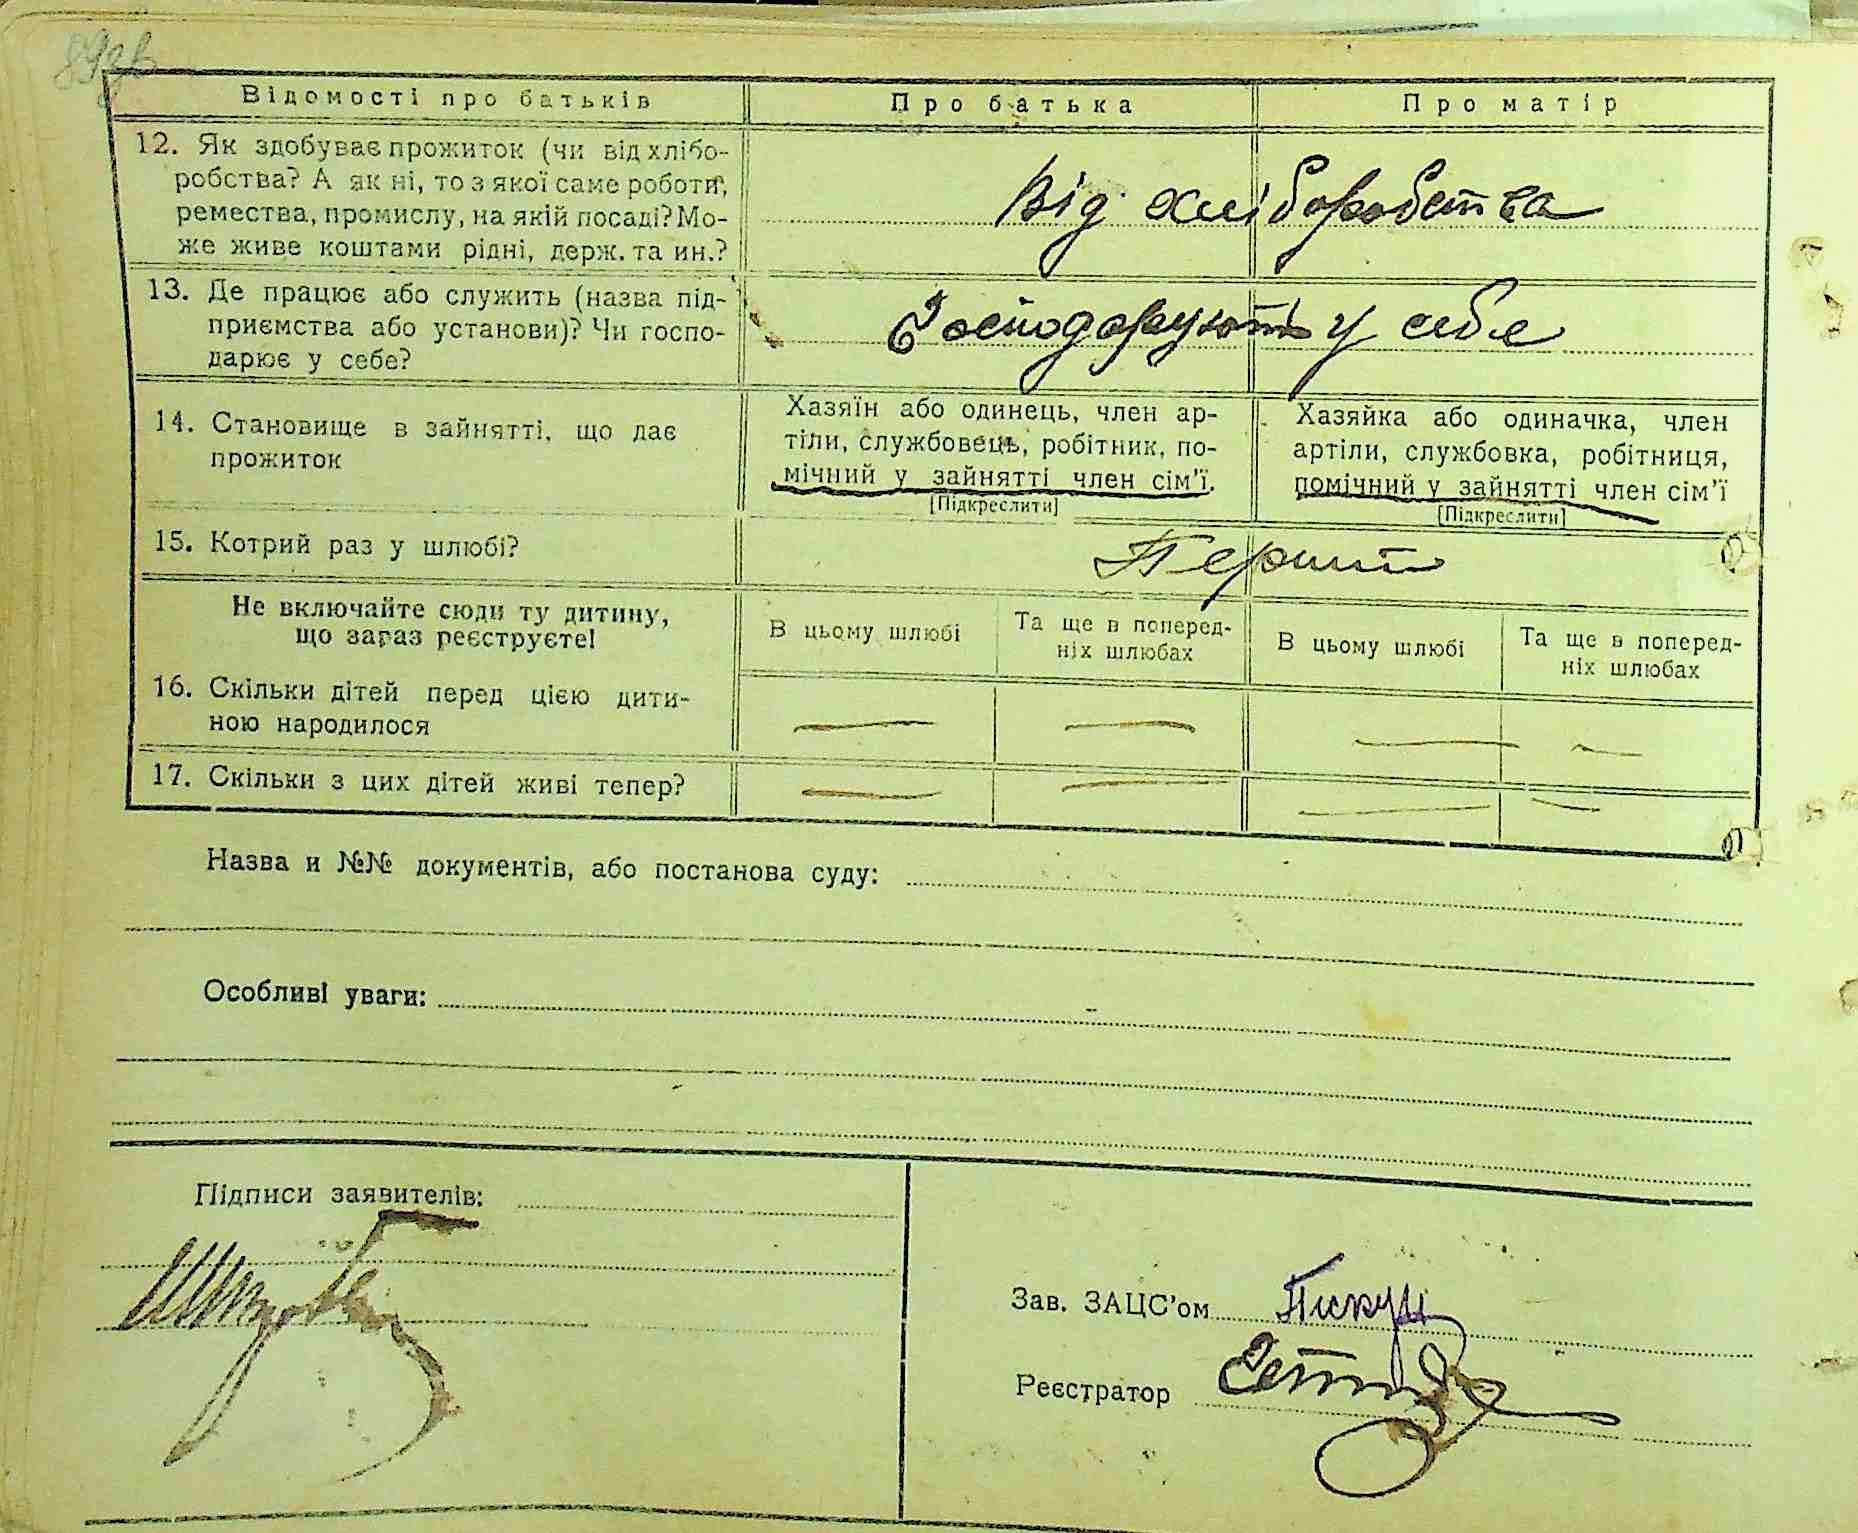 89зв
Відомості про батьків
Про батька
Про матір
12. Як здобуває прожиток (чи від хлібо-
робства? А як ні, то з якої саме роботи,
ремества, промислу, на якій посаді? Мо-
же живе коштами рідні, держ. та ин.?
Від хліборобства
13. Де працює або служить (назва під-
приємства або установи)? Чи госпо-
дарює у себе?
Господарують у себе
14. Становище в зайнятті, що дає
прожиток
Хазяїн або одинець, член ар-
тіли, службовець, робітник, по-
мічний у зайнятті член сім'ї.
[Підкреслити]
Хазяйка або одиначка, член
артіли, службовка, робітниця,
помічний у зайнятті член сім'ї
[Підкреслити]
15. Котрий раз у шлюбі?
Перший
Не включайте сюди ту дитину,
що зараз реєструєте!
В цьому шлюбі
Та ще в поперед-
ніх шлюбах
В цьому шлюбі
Та ще в поперед-
ніх шлюбах
16. Скільки дітей перед цією дити-
ною народилося
— — — —
17. Скільки з цих дітей живі тепер?
— — — —
Назва и №№ документів, або постанова суду:
Особливі уваги:
Підписи заявителів:
Зав. ЗАЦС'ом Пискун
Реєстратор